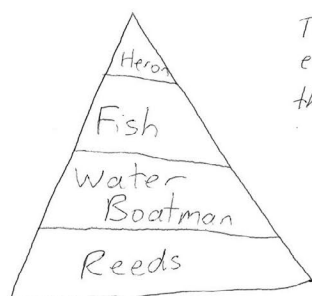 Heron
Fish
Water
Boatman
Reeds